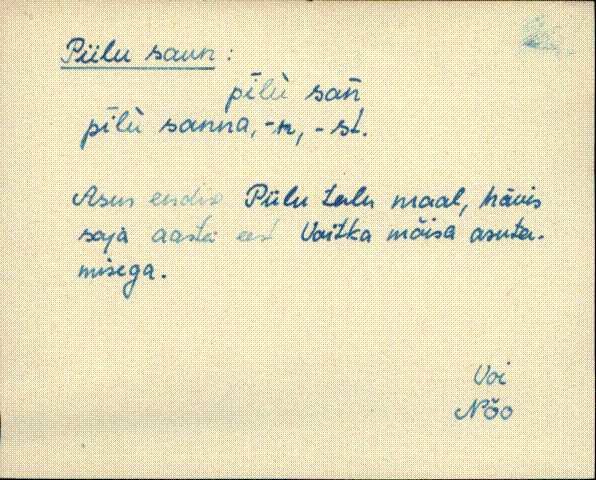 Piilu saun:
pīlù san̄
pīlù sanna, -n, -st.
Asus endise Piilu talu maal, hävis
saja aasta eest Voitka mõisa asuta-
misega.
Voi
Nõo